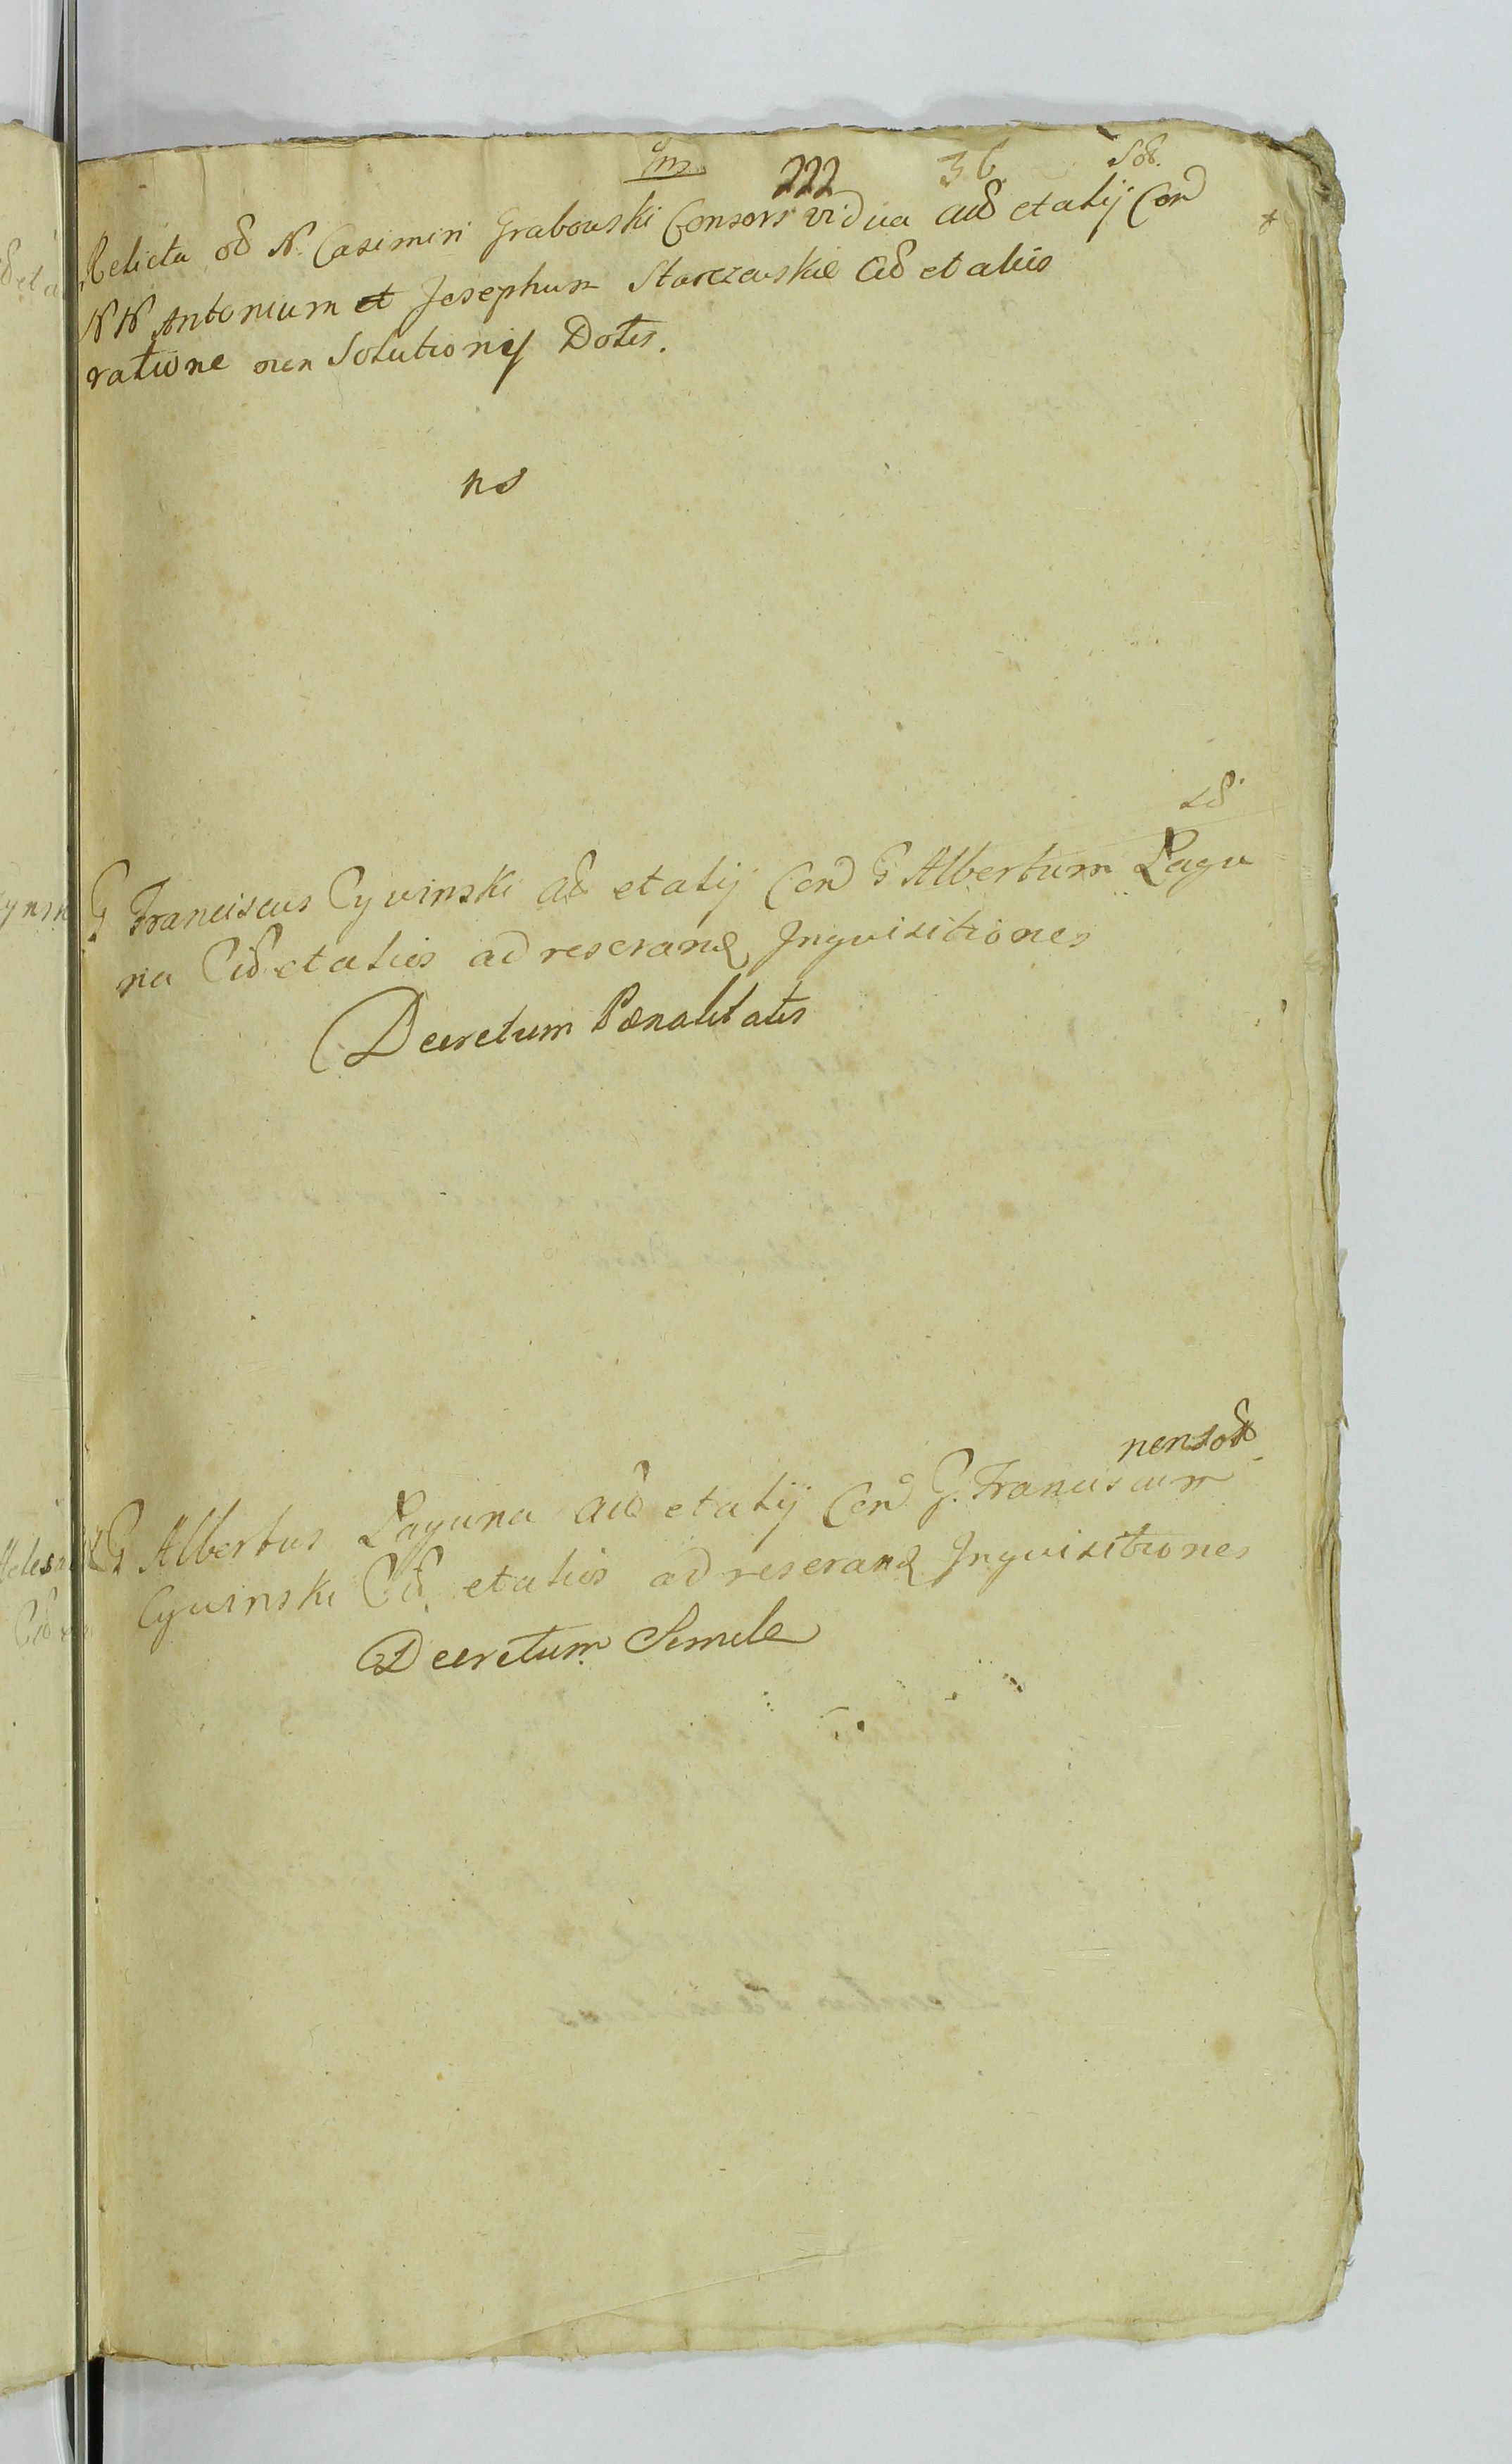 222 36 Sod.
Relicta od N. Casimiri Grabowski Consors vidua aud et alij Con
NN Antonium et Josephum Starczewskie Cid et alios
ratione non Solutionis Dotis.
ns
sd.
G Franciscus Cywinski ad et alij Con G Albertum Lagu
na Cid et alios ad reserand Inquisitiones
Decretum Pœnalitatis
non sod
G Albertus Laguna aud et alij Con G. Franciscum
Cywinski Cid et alios ad reserand Inquisitiones
Decretum Simile